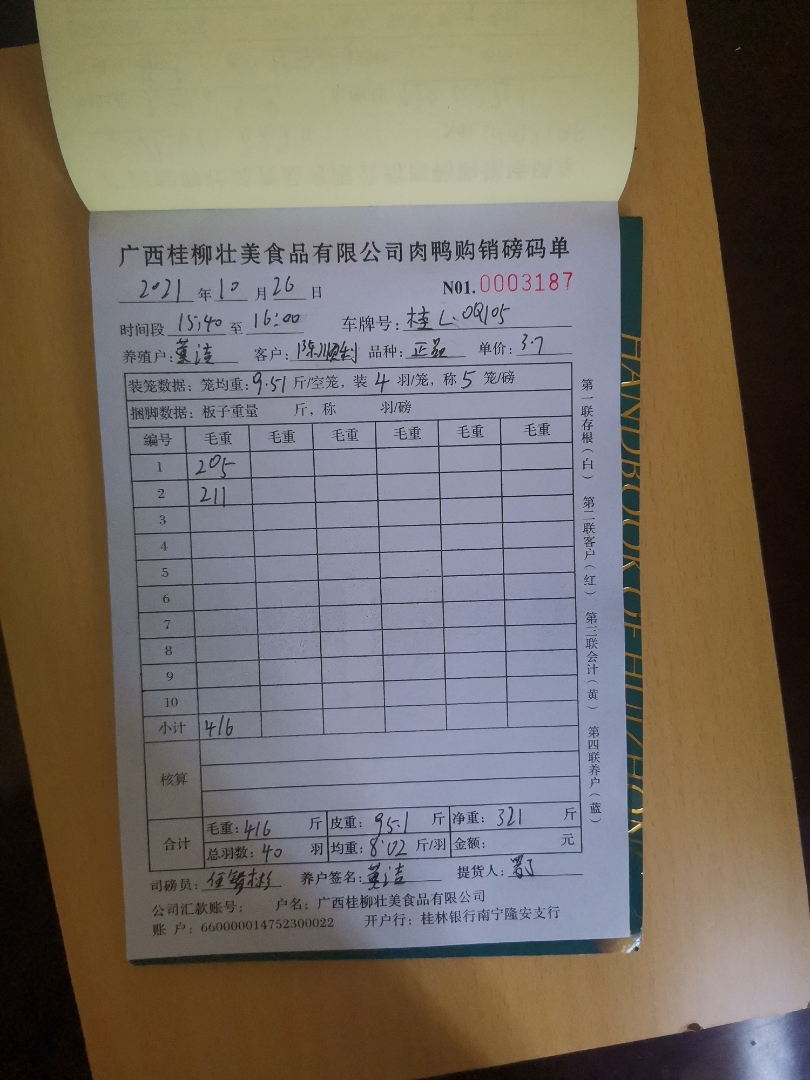 广西桂柳壮美食品有限公司肉鸭购销磅码单
2021 年 10 月 26 日 NO1.0003187
时间段 15:40 至 16:00 车牌号: 桂L·0Q105
养殖户: 黄洁 客户: 陈顺利 品种: 正品 单价: 3.7
装笼数据: 笼均重: 9.51 斤/空笼, 装 4 羽/笼, 称 5 笼/磅
捆脚数据: 板子重量 斤, 称 羽/磅
编号 毛重 毛重 毛重 毛重 毛重 毛重
1 205
2 211
3
4
5
6
7
8
9
10
小计 416
核算
合计 毛重: 416 斤 皮重: 95.1 斤 净重: 321 斤
总羽数: 40 羽 均重: 8.02 斤/羽 金额: 元
司磅员: 养户签名: 黄洁 提货人:
公司汇款账号: 户名: 广西桂柳壮美食品有限公司
账 户: 660000014752300022 开户行: 桂林银行南宁隆安支行
第一联存根(白) 第二联客户(红) 第三联会计(黄) 第四联养户(蓝)
HANDBOOK OF HUIZHONG